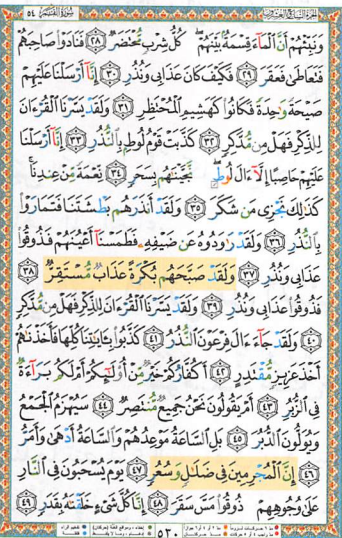 سورة القمر ٥٤
الجزء السابع والعشرون
وَنَبِّئْهُمْ أَنَّ ٱلْمَآءَ قِسْمَةٌۢ بَيْنَهُمْ ۖ كُلُّ شِرْبٍۢ مُّحْتَضَرٌۭ ٢٨ فَنَادَوْا۟ صَاحِبَهُمْ
فَتَعَاطَىٰ فَعَقَرَ ٢٩ فَكَيْفَ كَانَ عَذَابِى وَنُذُرِ ٣٠ إِنَّآ أَرْسَلْنَا عَلَيْهِمْ
صَيْحَةًۭ وَٰحِدَةًۭ فَكَانُوا۟ كَهَشِيمِ ٱلْمُحْتَظِرِ ٣١ وَلَقَدْ يَسَّرْنَا ٱلْقُرْءَانَ
لِلذِّكْرِ فَهَلْ مِن مُّدَّكِرٍۢ ٣٢ كَذَّبَتْ قَوْمُ لُوطٍۭ بِٱلنُّذُرِ ٣٣ إِنَّآ أَرْسَلْنَا
عَلَيْهِمْ حَاصِبًا إِلَّآ ءَالَ لُوطٍۢ ۖ نَّجَّيْنَٰهُم بِسَحَرٍۢ ٣٤ نِّعْمَةًۭ مِّنْ عِندِنَا ۚ
كَذَٰلِكَ نَجْزِى مَن شَكَرَ ٣٥ وَلَقَدْ أَنذَرَهُم بَطْشَتَنَا فَتَمَارَوْا۟
بِٱلنُّذُرِ ٣٦ وَلَقَدْ رَٰوَدُوهُ عَن ضَيْفِهِۦ فَطَمَسْنَآ أَعْيُنَهُمْ فَذُوقُوا۟
عَذَابِى وَنُذُرِ ٣٧ وَلَقَدْ صَبَّحَهُم بُكْرَةً عَذَابٌۭ مُّسْتَقِرٌّۭ ٣٨
فَذُوقُوا۟ عَذَابِى وَنُذُرِ ٣٩ وَلَقَدْ يَسَّرْنَا ٱلْقُرْءَانَ لِلذِّكْرِ فَهَلْ مِن مُّدَّكِرٍۢ
٤٠ وَلَقَدْ جَآءَ ءَالَ فِرْعَوْنَ ٱلنُّذُرُ ٤١ كَذَّبُوا۟ بِـَٔايَٰتِنَا كُلِّهَا فَأَخَذْنَٰهُمْ
أَخْذَ عَزِيزٍۢ مُّقْتَدِرٍ ٤٢ أَكُفَّارُكُمْ خَيْرٌۭ مِّنْ أُو۟لَٰٓئِكُمْ أَمْ لَكُم بَرَآءَةٌۭ
فِى ٱلزُّبُرِ ٤٣ أَمْ يَقُولُونَ نَحْنُ جَمِيعٌۭ مُّنتَصِرٌۭ ٤٤ سَيُهْزَمُ ٱلْجَمْعُ
وَيُوَلُّونَ ٱلدُّبُرَ ٤٥ بَلِ ٱلسَّاعَةُ مَوْعِدُهُمْ وَٱلسَّاعَةُ أَدْهَىٰ وَأَمَرُّ
٤٦ إِنَّ ٱلْمُجْرِمِينَ فِى ضَلَٰلٍۢ وَسُعُرٍۢ ٤٧ يَوْمَ يُسْحَبُونَ فِى ٱلنَّارِ
عَلَىٰ وُجُوهِهِمْ ذُوقُوا۟ مَسَّ سَقَرَ ٤٨ إِنَّا كُلَّ شَىْءٍ خَلَقْنَٰهُ بِقَدَرٍۢ ٤٩
٥٣٠